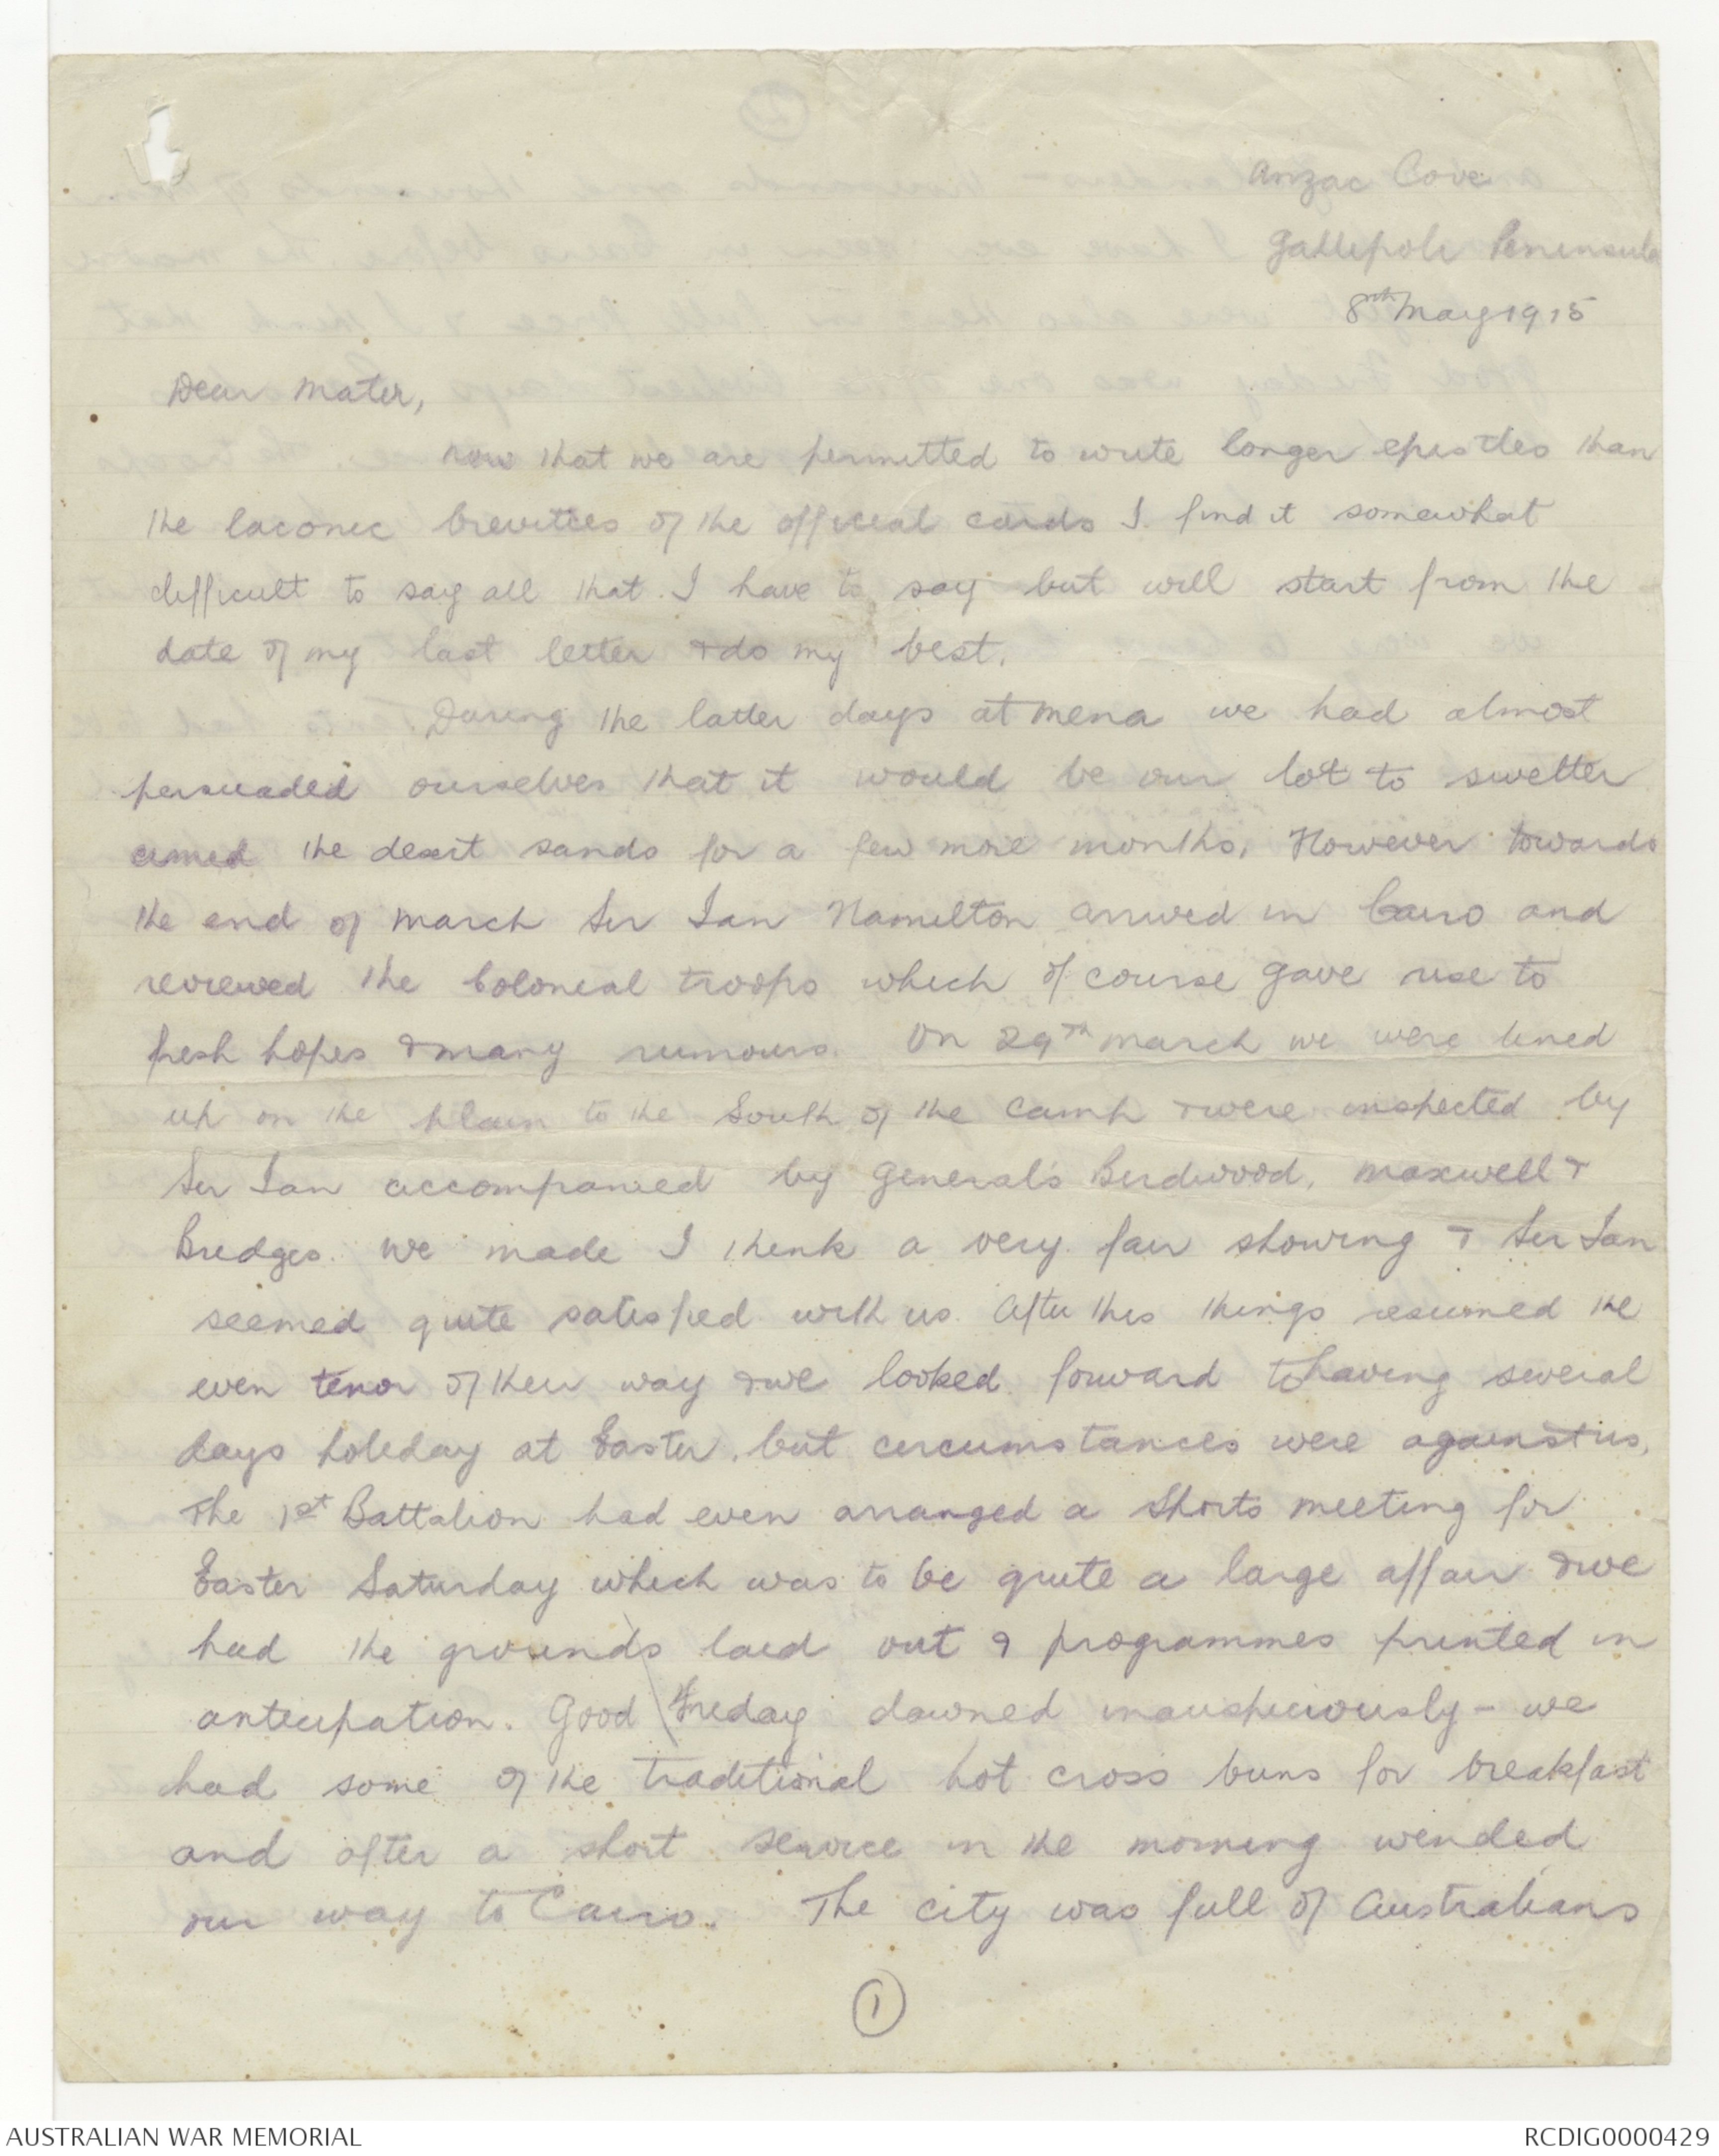 Anzac Cove
Gallipoli Peninsula
8th May 1915
Dear Mater,
Now that we are permitted to write longer epistles than
the laconic brevities of the official cards I find it somewhat
difficult to say all that I have to say but will start from the
date of my last letter & do my best.
During the latter days at Mena we had almost
persuaded ourselves that it would be our lot to swelter
amid the desert sands for a few more months. However towards
the end of March Sir Ian Hamilton arrived in Cairo and
reviewed the Colonial troops which of course gave rise to
fresh hopes & many rumours. On 29th March we were lined
up on the plain to the South of the camp & were inspected by
Sir Ian accompanied by General's Birdwood, Maxwell &
Bridges. We made I think a very fair showing & Sir Ian
seemed quite satisfied with us. After this things resumed the
even tenor of their way & we looked forward to having several
days holiday at Easter, but circumstances were against us.
The 1st Battalion had even arranged a Sports meeting for
Easter Saturday which was to be quite a large affair & we
had the grounds laid out & programmes printed in
anticipation. Good Friday dawned inauspiciously - we
had some of the traditional hot cross buns for breakfast
and after a short service in the morning wended
our way to Cairo. The city was full of Australians
1
AUSTRALIAN WAR MEMORIAL
RCDIG0000429